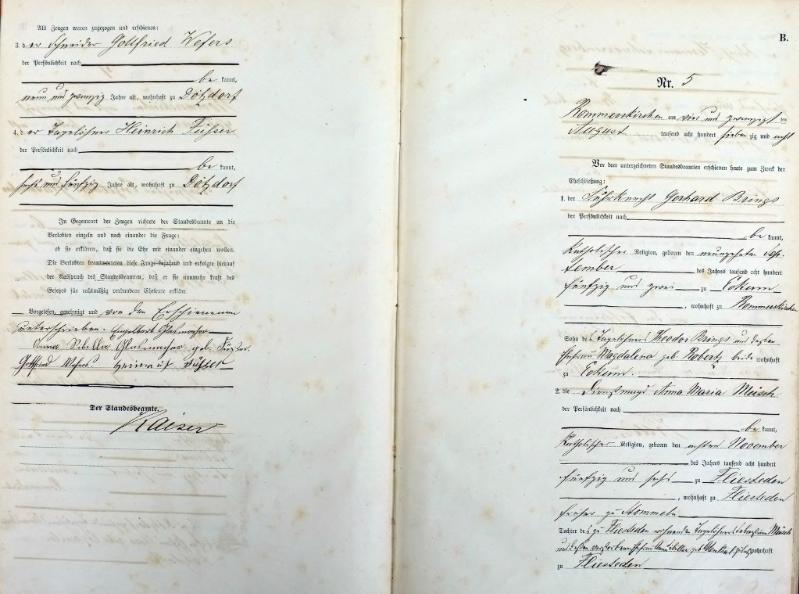 Als Zeugen waren zugezogen und erschienen:
3. der Schneider Gottfried Wefers
der Persönlichkeit nach
be kannt,
neun und zwanzig Jahre alt, wohnhaft zu Dötzdorf
4. der Tagelöhner Heinrich
der Persönlichkeit nach
be kannt,
sechs und fünfzig Jahre alt, wohnhaft zu Dötzdorf
In Gegenwart der Zeugen richtete der Standesbeamte an die
Verlobten einzeln und nach einander die Frage:
ob sie erklären, daß sie die Ehe mit einander eingehen wollen.
Die Verlobten beantworteten diese Frage bejahend und erfolgte hierauf
der Ausspruch des Standesbeamten, daß er sie nunmehr kraft des
Gesetzes für rechtmäßig verbundene Eheleute erkläre.
Vorgelesen, genehmigt und von den Erschienenen
unterschrieben. Engelbert
Anna Sibilla geb.
Gottfried Wefers Heinrich
Der Standesbeamte.
Kaiser
B.
Nr. 5
Rommerskirchen am vier und zwanzigsten
August tausend acht hundert sieben zig und acht
Vor dem unterzeichneten Standesbeamten erschienen heute zum Zweck der
Eheschließung:
1. der Gerhard Brings
der Persönlichkeit nach
be kannt,
katholischer Religion, geboren den neunzehnten Sep-
tember des Jahres tausend acht hundert
fünfzig und zwei zu Eckum
, wohnhaft zu Rommerskirchen
Sohn des Tagelöhners Theodor Brings und dessen
Ehefrau Magdalena geb. Robertz beide wohnhaft
zu Eckum.
2. die Dienstmagd Anna Maria Meisch
der Persönlichkeit nach
be kannt,
katholischer Religion, geboren den achten November
des Jahres tausend acht hundert
fünfzig und sechs zu Fliesteden
, wohnhaft zu Fliesteden
früher zu Stommeln
Tochter des zu Fliesteden wohnenden Tagelöhners Meisch
und dessen verstorbenen Ehefrau geb. wohnhaft
zu Fliesteden